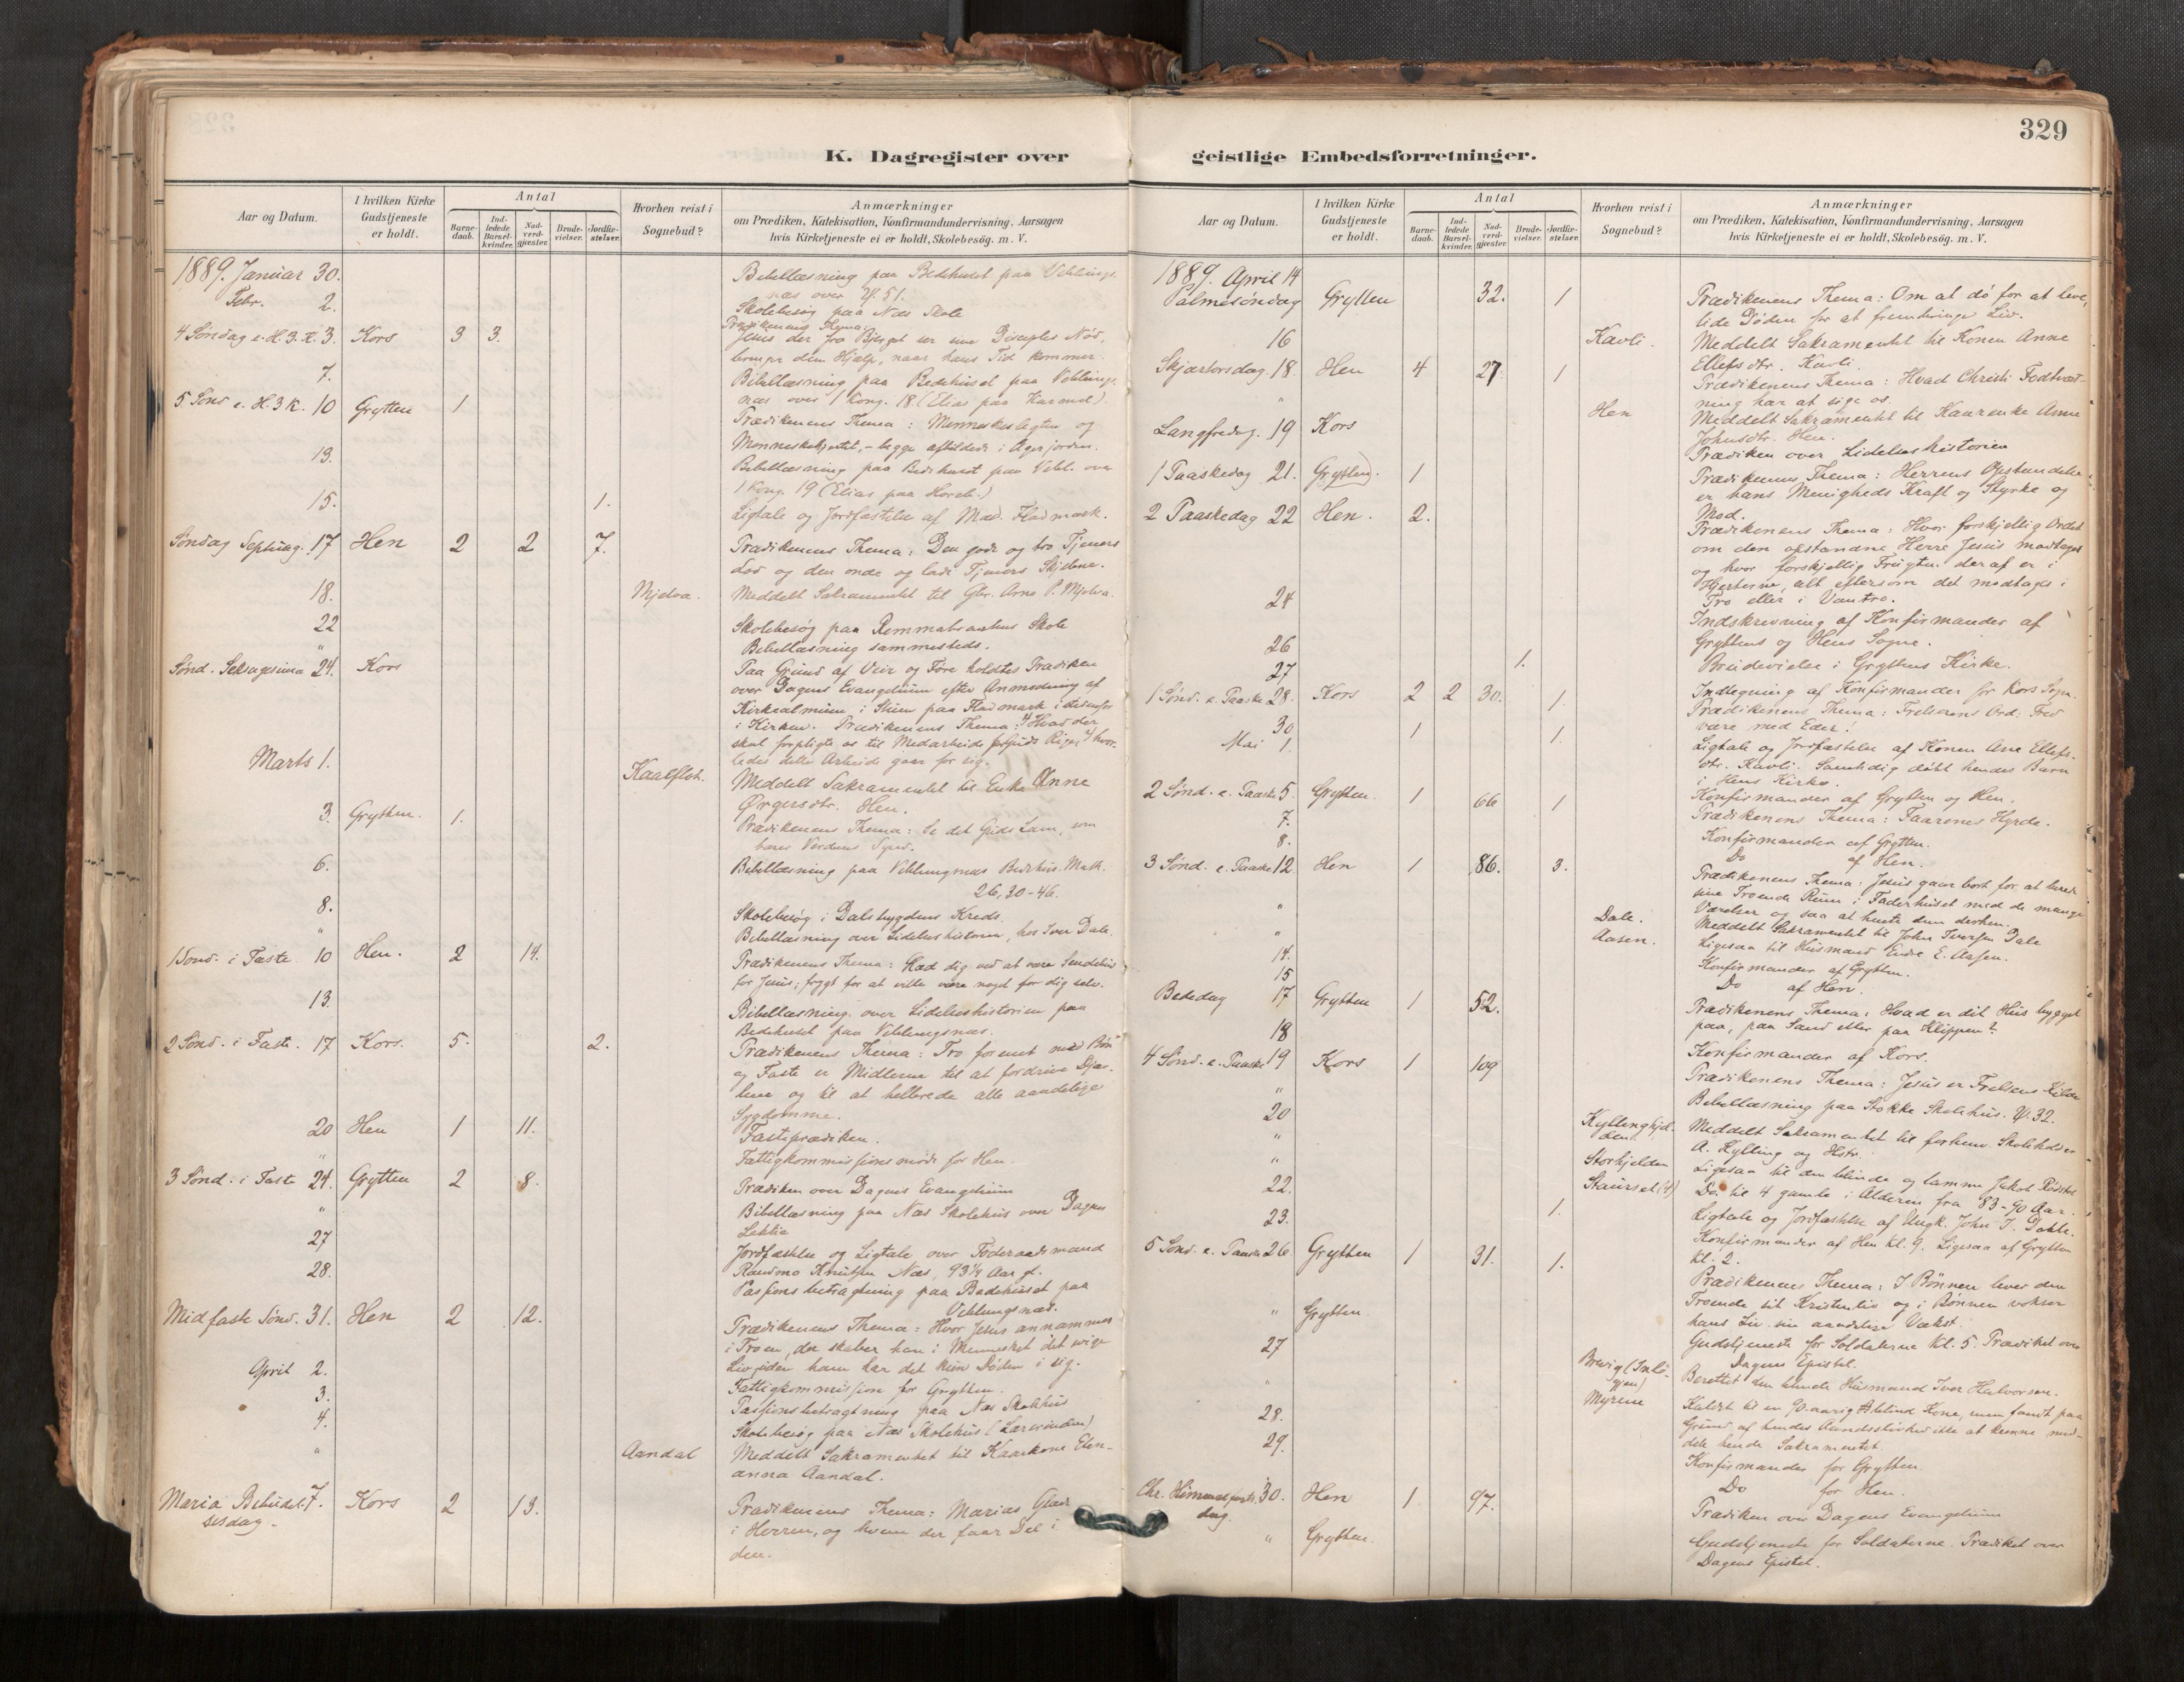 329
K. Dagregister over geistlige Embedsforretninger.
Aar og Datum.
I hvilken Kirke Gudstjeneste er holdt.
Antal
Barne-daab.
Ind-ledede Barsel-kvinder.
Nad-verd-gjæster.
Brude-vielser.
Jordfæ-stelser.
Hvorhen reist i Sognebud?
Anmærkninger
om Prædiken, Katekisation, Konfirmandundervisning, Aarsagen
hvis Kirketjeneste ei er holdt, Skolebesøg. m. V.
1889. Januar 30. Bibellæsning paa Bedehuset paa Veblungs-
næs over ψ. 51.
Febr. 2. Skolebesøg paa Næs Skole
4 Søndag e. H. 3 K. 3. Kors 3 3. Prædikenens Thema:
Jesus der fra Bjerget ser sine Disciples Nød,
bringer dem Hjælp, naar hans Tid kommer.
7. Bibellæsning paa Bedehuset paa Veblungs-
næs over 1 Kong. 18 (Elias paa Karmel).
5 Sønd e. H. 3 K. 10 Grytten 1 Prædikenens Thema: Menneskeslegten og
Menneskehjertet, - begge afbildede i Agerjorden.
13. Bibellæsning paa Bedehuset paa Vebl. over
1 Kong. 19 (Elias paa Horeb.)
15. 1. Ligtale og Jordfæstelse af Mad. Fladmark.
Søndag Septuag. 17 Hen 2 2 7. Prædikenens Thema: Den gode og tro Tjeners
Lod og den onde og lade Tjeners Skjebne.
18. Mjelva. Meddelt Sakramentet til Gbr. Arne P. Mjelva.
22 Skolebesøg paa Remmabraatens Skole
" Bibellæsning sammesteds.
Sønd. Seksagesima 24. Kors Paa Grund af Veir og Føre holdtes Prædiken
over Dagens Evangelium efter Anmodning af
Kirkealmuen i Stuen paa Fladmark istedenfor
i Kirken. Prædikenens Thema: Hvad der
skal forpligte os til Medarbeide for Guds Rige, hvor-
ledes dette Arbeide gaar for sig.
Marts 1. Kaalflot. Meddelt Sakramentet til Enke Anne
Ørgersdtr. Hen.
3. Grytten. 1. Prædikenens Thema: Se det Guds Lam, som
bærer Verdens Synd.
6. Bibellæsning paa Veblungnæs Bedehus. Math.
26, 30-46.
8. Skolebesøg i Dalsbygdens Kreds.
" Bibellæsning over Lidelseshistorien, hos Iver Dale.
1 Sønd. i Faste 10 Hen. 2 14. Prædikenens Thema: Glæd dig ved at være Sendebud
for Jesus; frygt for at ville være noget for dig selv.
13. Bibellæsning over Lidelseshistorien paa
Bedehuset paa Veblungsnæs.
2 Sønd. i Faste. 17 Kors. 5. 2. Prædikenens Thema: Tro forenet med Bøn
og Faste er Midlerne til at fordrive Djæv-
lene og til at helbrede alle aandelige
Sygdomme.
20 Hen 1 11. Fasteprædiken.
" Fattigkommissionsmøde for Hen.
3 Sønd. i Faste 24. Grytten 2 8. Prædiken over Dagens Evangelium
" Bibellæsning paa Næs Skolehus over Dagens
Lektie
27 Jordfæstelse og Ligtale over Føderaadsmand
Knutsen Næs, 93¼ Aar gl.
28. Passionsbetragtning paa Bedehuset paa
Veblungsnæs.
Midfaste Sønd. 31. Hen 2 12. Prædikenens Thema: Hvor Jesus annammes
i Troen, der skaber han i Mennesket det evige
Liv, uden ham har det kun Døden i sig.
April 2. Fattigkommission for Grytten.
3. Passionsbetragtning paa Næs Skolehus
4. Skolebesøg paa Næs Skolehus (Lærerinden)
" Aandal Meddelt Sakramentet til Kaarkone Elen-
anna Aandal.
Maria Bebudel-
sesdag 7. Kors 2 13. Prædikenens Thema: Marias Glæde
i Herren, og hvem der faar Del i
den.
Aar og Datum.
I hvilken Kirke Gudstjeneste er holdt.
Antal
Barne-daab.
Ind-ledede Barsel-kvinder.
Nad-verd-gjæster.
Brude-vielser.
Jordfæ-stelser.
Hvorhen reist i Sognebud?
Anmærkninger
om Prædiken, Katekisation, Konfirmandundervisning, Aarsagen
hvis Kirketjeneste ei er holdt, Skolebesøg. m. V.
1889. April 14
Palmesøndag Grytten 32. 1 Prædikenens Thema: Om at dø for at leve,
lide Døden for at frembringe Liv.
16 Kavli. Meddelt Sakramentet til Konen Anne
Ellefsdtr. Kavli.
Skjærtorsdag. 18. Hen 4 27. 1 Prædikenens Thema: Hvad Christi Fodtvæt-
ning har at sige os.
" Hen Meddelt Sakramentet til Kaarenke Anne
Johnsdtr. Hen.
Langfredag. 19 Kors Prædiken over Lidelseshistorien
1 Paaskedag 21. Grytten. 1 Prædikenens Thema: Herrens Opstandelse
er hans Menigheds Kraft og Styrke og
Mod.
2 Paaskedag 22 Hen. 2. Prædikenens Thema: Hvor forskjellig Ordet
om den opstandne Herre Jesus modtages
og hvor forskjellig Frugten deraf er i
Hjerterne, alt eftersom det modtages i
Tro eller i Vantro.
24 Indskrivning af Konfirmander af
Gryttens og Hens Sogne.
26 1. Brudevielse i Gryttens Kirke.
27 Indtegning af Konfirmander for Kors Sogn.
1 Sønd. e. Paaske 28. Kors 2 2 30. 1. Prædikenens Thema: Frelserens Ord: Fred
være med Eder!
30 1 1. Ligtale og Jordfæstelse af Konen Ane Ellefs-
dtr. Kavli. Samtidig døbt hendes Barn
i Hens Kirke.
Mai 1. Konfirmander af Grytten og Hen.
2 Sønd. e. Paaske 5. Grytten. 1 66 1 Prædikenens Thema: Faarenes Hyrde.
7. Konfirmander af Grytten.
8. Do af Hen.
3 Sønd. e. Paaske 12 Hen 1 86. 3. Prædikenens Thema: Jesus gaar bort for at berede
sine Troende Rum i Faderhuset med de mange
Værelser og saa at hente dem derhen.
" Dale. Meddelt Sakramentet til John Iversen Dale
" Aasen. Ligesaa til Husmand Endre E. Aasen.
14. Konfirmander af Grytten.
15 Do af Hen.
Bededag 17 Grytten 1 52. Prædikenens Thema: Hvad er dit Hus bygget
paa, paa Sand eller paa Klippen?
18 Konfirmander af Kors.
4 Sønd. e. Paaske 19 Kors 1 109 Prædikenens Thema: Jesus er Frelsens Kilde
" Bibellæsning paa Stokke Skolehus. ψ. 32.
20 Kyllinghjel-
den. Meddelt Sakramentet til forhenv. Skoleholder
A. Kylling og Hstr.
" Storhjelden Ligesaa til den blinde og lamme Jakob
" Staurset (4) Do til 4 gamle i Alderen fra 83-90 Aar.
22. 1. Ligtale og Jordfæstelse af Ungk. John J. Dahle.
23. Konfirmander af Hen kl. 9. Ligesaa af Grytten
kl. 2.
5 Sønd. e. Paaske 26. Grytten 1 31. 1. Prædikenens Thema: I Bønnen lever den
Troende sit Kristenliv og i Bønnen vokser
hans Liv sin aandelige Vækst.
" Grytten Gudstjeneste for Soldaterne kl. 5. Prædiket over
Dagens Epistel.
27 Brevig Berettet den blinde Husmand Iver Halvorsen.
" Myrene Kaldt til en 90-aarig blind Kone, men fandt paa
Grund af hendes Aandssløvhed ikke at kunne med-
dele hende Sakramentet.
28. Konfirmander for Grytten
29. Do for Hen.
Chr. Himmelfarts-
dag 30. Hen 1 97. Prædiken over Dagens Evangelium
" Grytten. Gudstjeneste for Soldaterne. Prædiket over
Dagens Epistel.